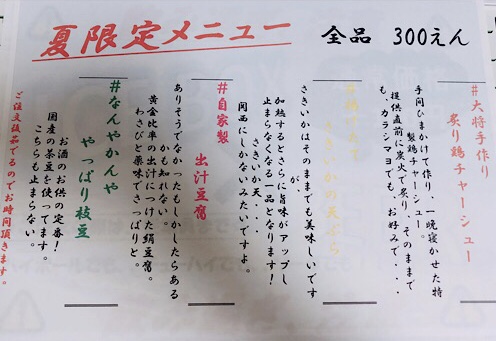 夏限定メニュー
全品 300えん
#大将手作り
炙り鶏チャーシュー
手間ひまかけて作り、一晩寝かせた特
製鶏チャーシュー。
提供直前に炭火で炙り、そのままで
も、カラシマヨでも、お好みで・・・・
さきいかの天ぷら
さきいかはそのままでも美味しいです
が
加熱するとさらに旨味がアップし
止まらなくなる一品となります!
さきいか天、、、
関西にしかないみたいですよ。
#自家製
出汁豆腐
ありそうでなかったもしかしたらある
かも知れない。
黄金比率の出汁につけた絹豆腐。
わさびと薬味でさっぱりと。
#なんやかんや
やっぱり枝豆
お酒のお供の定番!
国産の茶豆を使ってます。
こちらも止まらない。
ご注文後茹でるのでお時間頂きます。